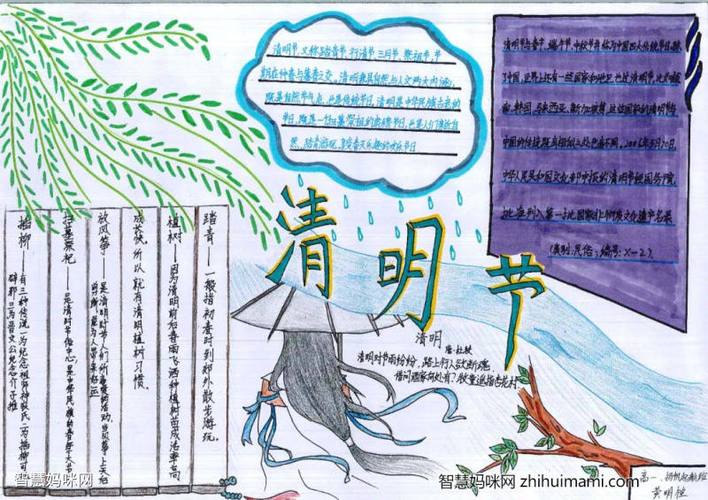 清明节，又称踏青节、行清节、三月节、祭祖节，节
期在仲春与暮春之交，清明兼具自然与人文两大内涵，
既是自然节气点，也是传统节日，清明是中华民族古老的
节日，既是一个扫墓祭祖的肃穆节日，也是人们亲近自
然、踏青游玩、享受春天乐趣的欢乐节日
清明节与春节、端午节、中秋节并称为中国四大传统节日。除
了中国，世界上还有一些国家和地区也过清明节，比如越
南、韩国、马来西亚、新加坡等，这些国家的清明节与
中国的传统既有相似之处也有不同，2006年5月20日，
中华人民共和国文化部申报的清明节经国务院
批准列入第一批国家级非物质文化遗产名录
(类别:民俗;编号:X-2)
清明节
踏青——一般指初春时到郊外散步游玩。
植树——因为清明前后春雨飞洒种植树苗成活率高
成长快，所以就有清明植树习惯
放风筝——是清明时节人们所喜爱的活动
扫墓祭祀——是清明节习俗中心
插柳——有三种传说
清明
唐·杜牧
清明时节雨纷纷，路上行人欲断魂
借问酒家何处有？牧童遥指杏花村
高一、扬帆起航班
黄明桂
智慧妈咪网
智慧妈咪网 zhihuimami.com